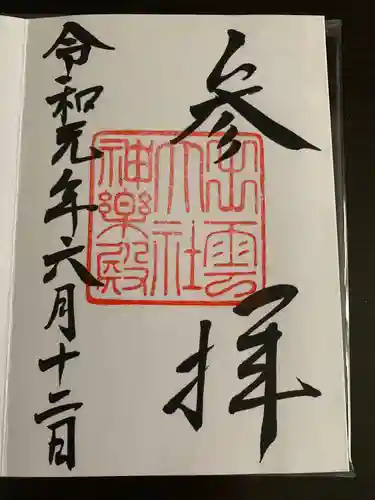 参拝
出雲
大社
神樂殿
令和元年六月十二日